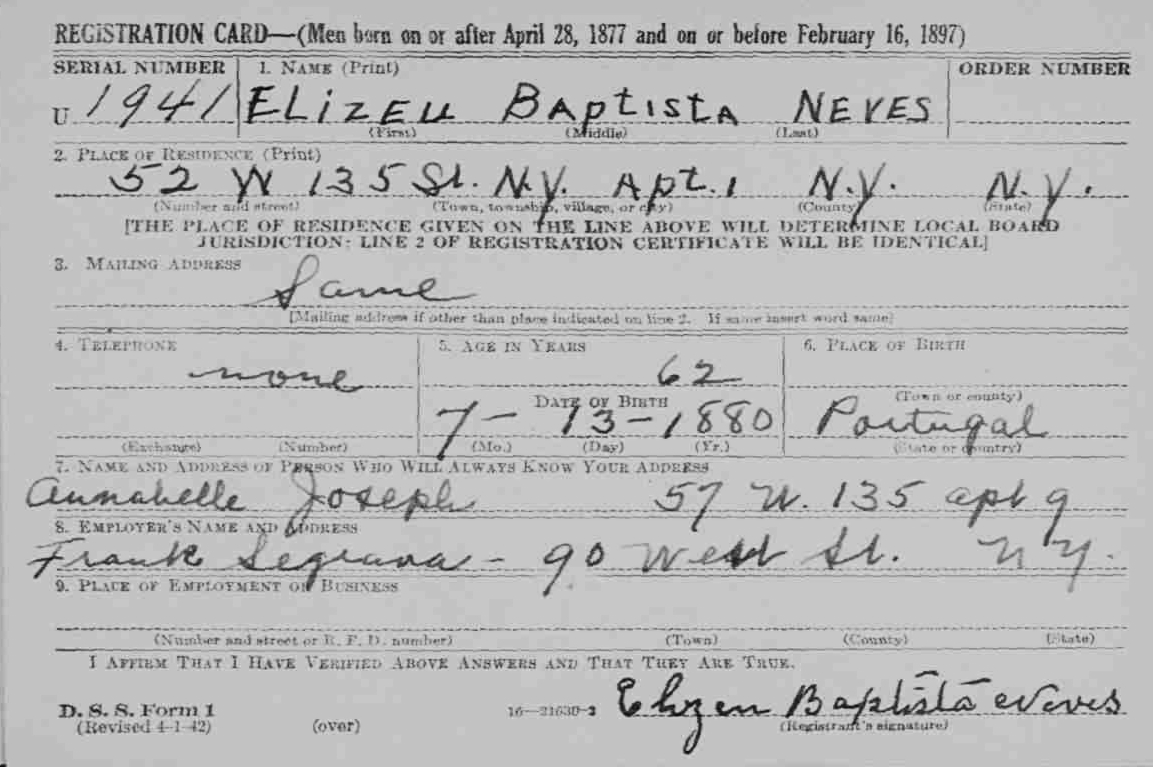 REGISTRATION CARD—(Men born on or after April 28, 1877 and on or before February 16, 1897)
SERIAL NUMBER 1. NAME (Print) ORDER NUMBER
U 1941 ELIZEU BAPTISTA NEVES
(First) (Middle) (Last)
2. PLACE OF RESIDENCE (Print)
52 W 135 St. N.Y. Apt. 1 N.Y. N.Y.
(Number and street) (Town, township, village, or city) (County) (State)
[THE PLACE OF RESIDENCE GIVEN ON THE LINE ABOVE WILL DETERMINE LOCAL BOARD
JURISDICTION; LINE 2 OF REGISTRATION CERTIFICATE WILL BE IDENTICAL]
3. MAILING ADDRESS
Same
[Mailing address if other than place indicated on line 2. If same insert word same]
4. TELEPHONE 5. AGE IN YEARS 6. PLACE OF BIRTH
none 62
DATE OF BIRTH (Town or county)
7-13-1880 Portugal
(Exchange) (Number) (Mo.) (Day) (Yr.) (State or country)
7. NAME AND ADDRESS OF PERSON WHO WILL ALWAYS KNOW YOUR ADDRESS
Annabelle Joseph 57 W. 135 apt 9
8. EMPLOYER'S NAME AND ADDRESS
Frank - 90 West St. N Y.
9. PLACE OF EMPLOYMENT OR BUSINESS
(Number and street or R. F. D. number) (Town) (County) (State)
I AFFIRM THAT I HAVE VERIFIED ABOVE ANSWERS AND THAT THEY ARE TRUE.
D. S. S. Form 1 16—21630-2 Elizeu Baptista Neves
(Revised 4-1-42) (over) (Registrant's signature)